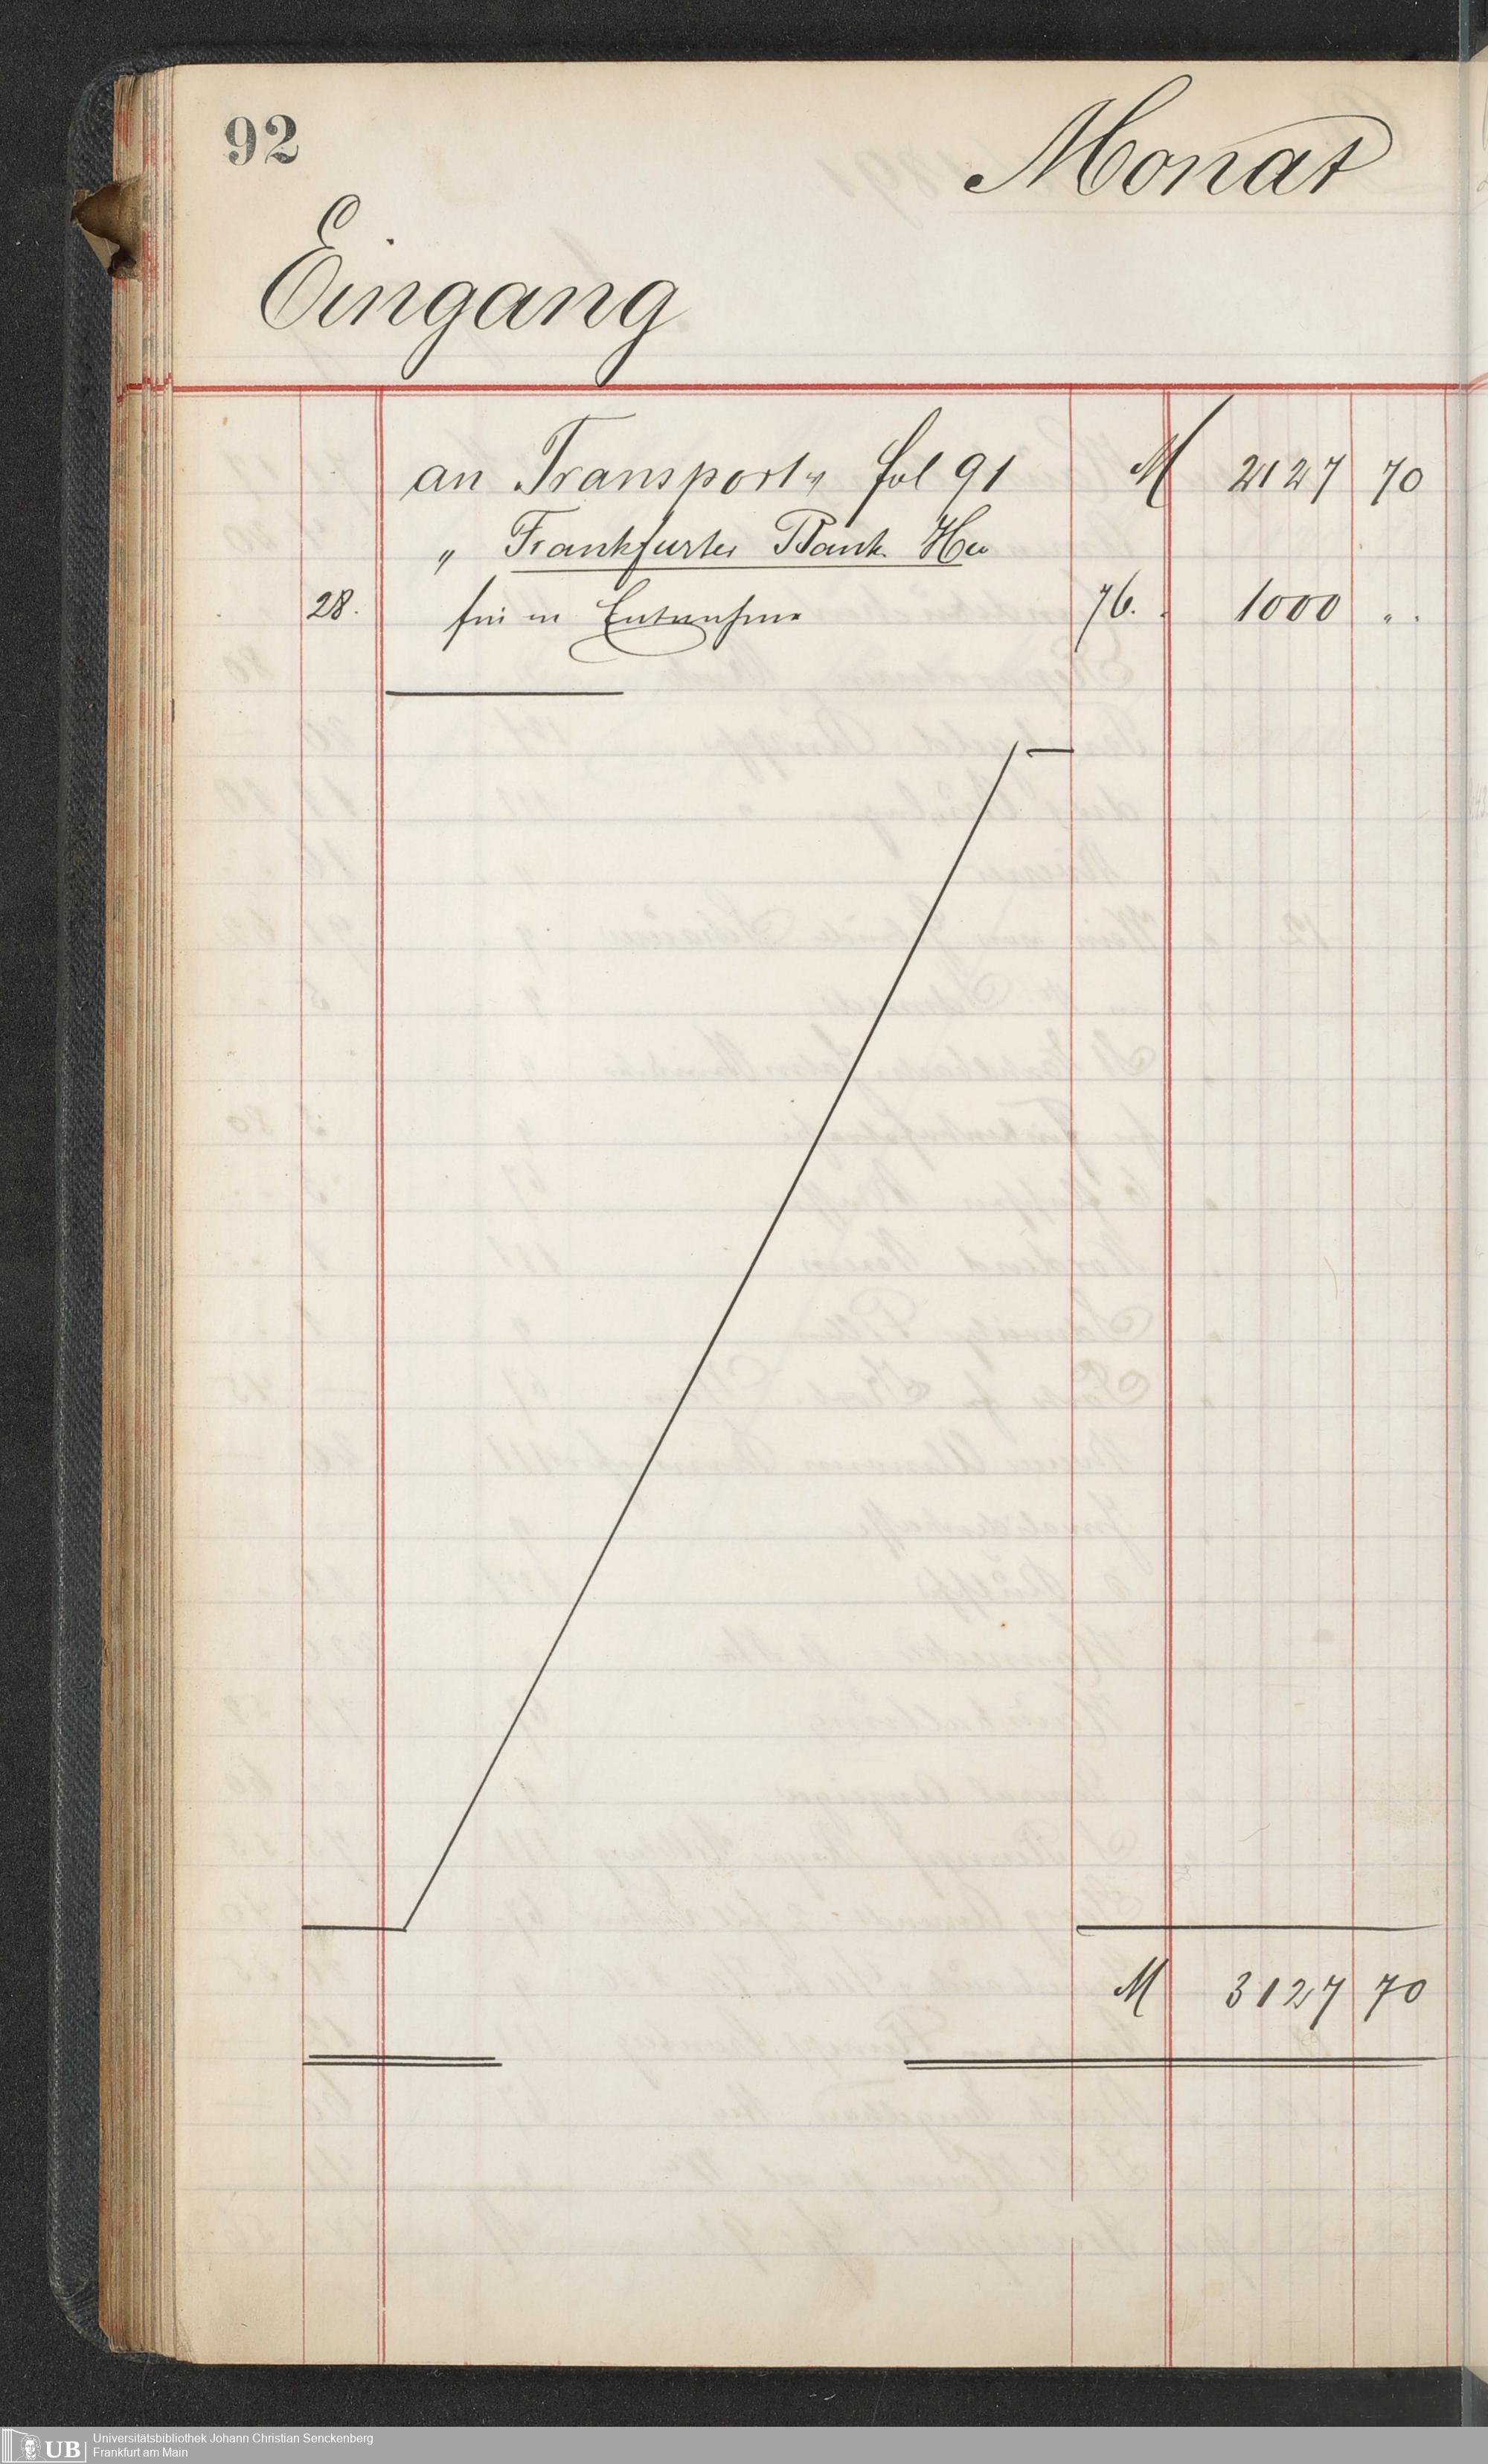 92
Monat
Eingang
an Transport " fol 91 M 2127 70
" Frankfurter Bank
28. für m Entnahme 76. 1000 " .
M 3127 70
UB Universitätsbibliothek Johann Christian Senckenberg
Frankfurt am Main